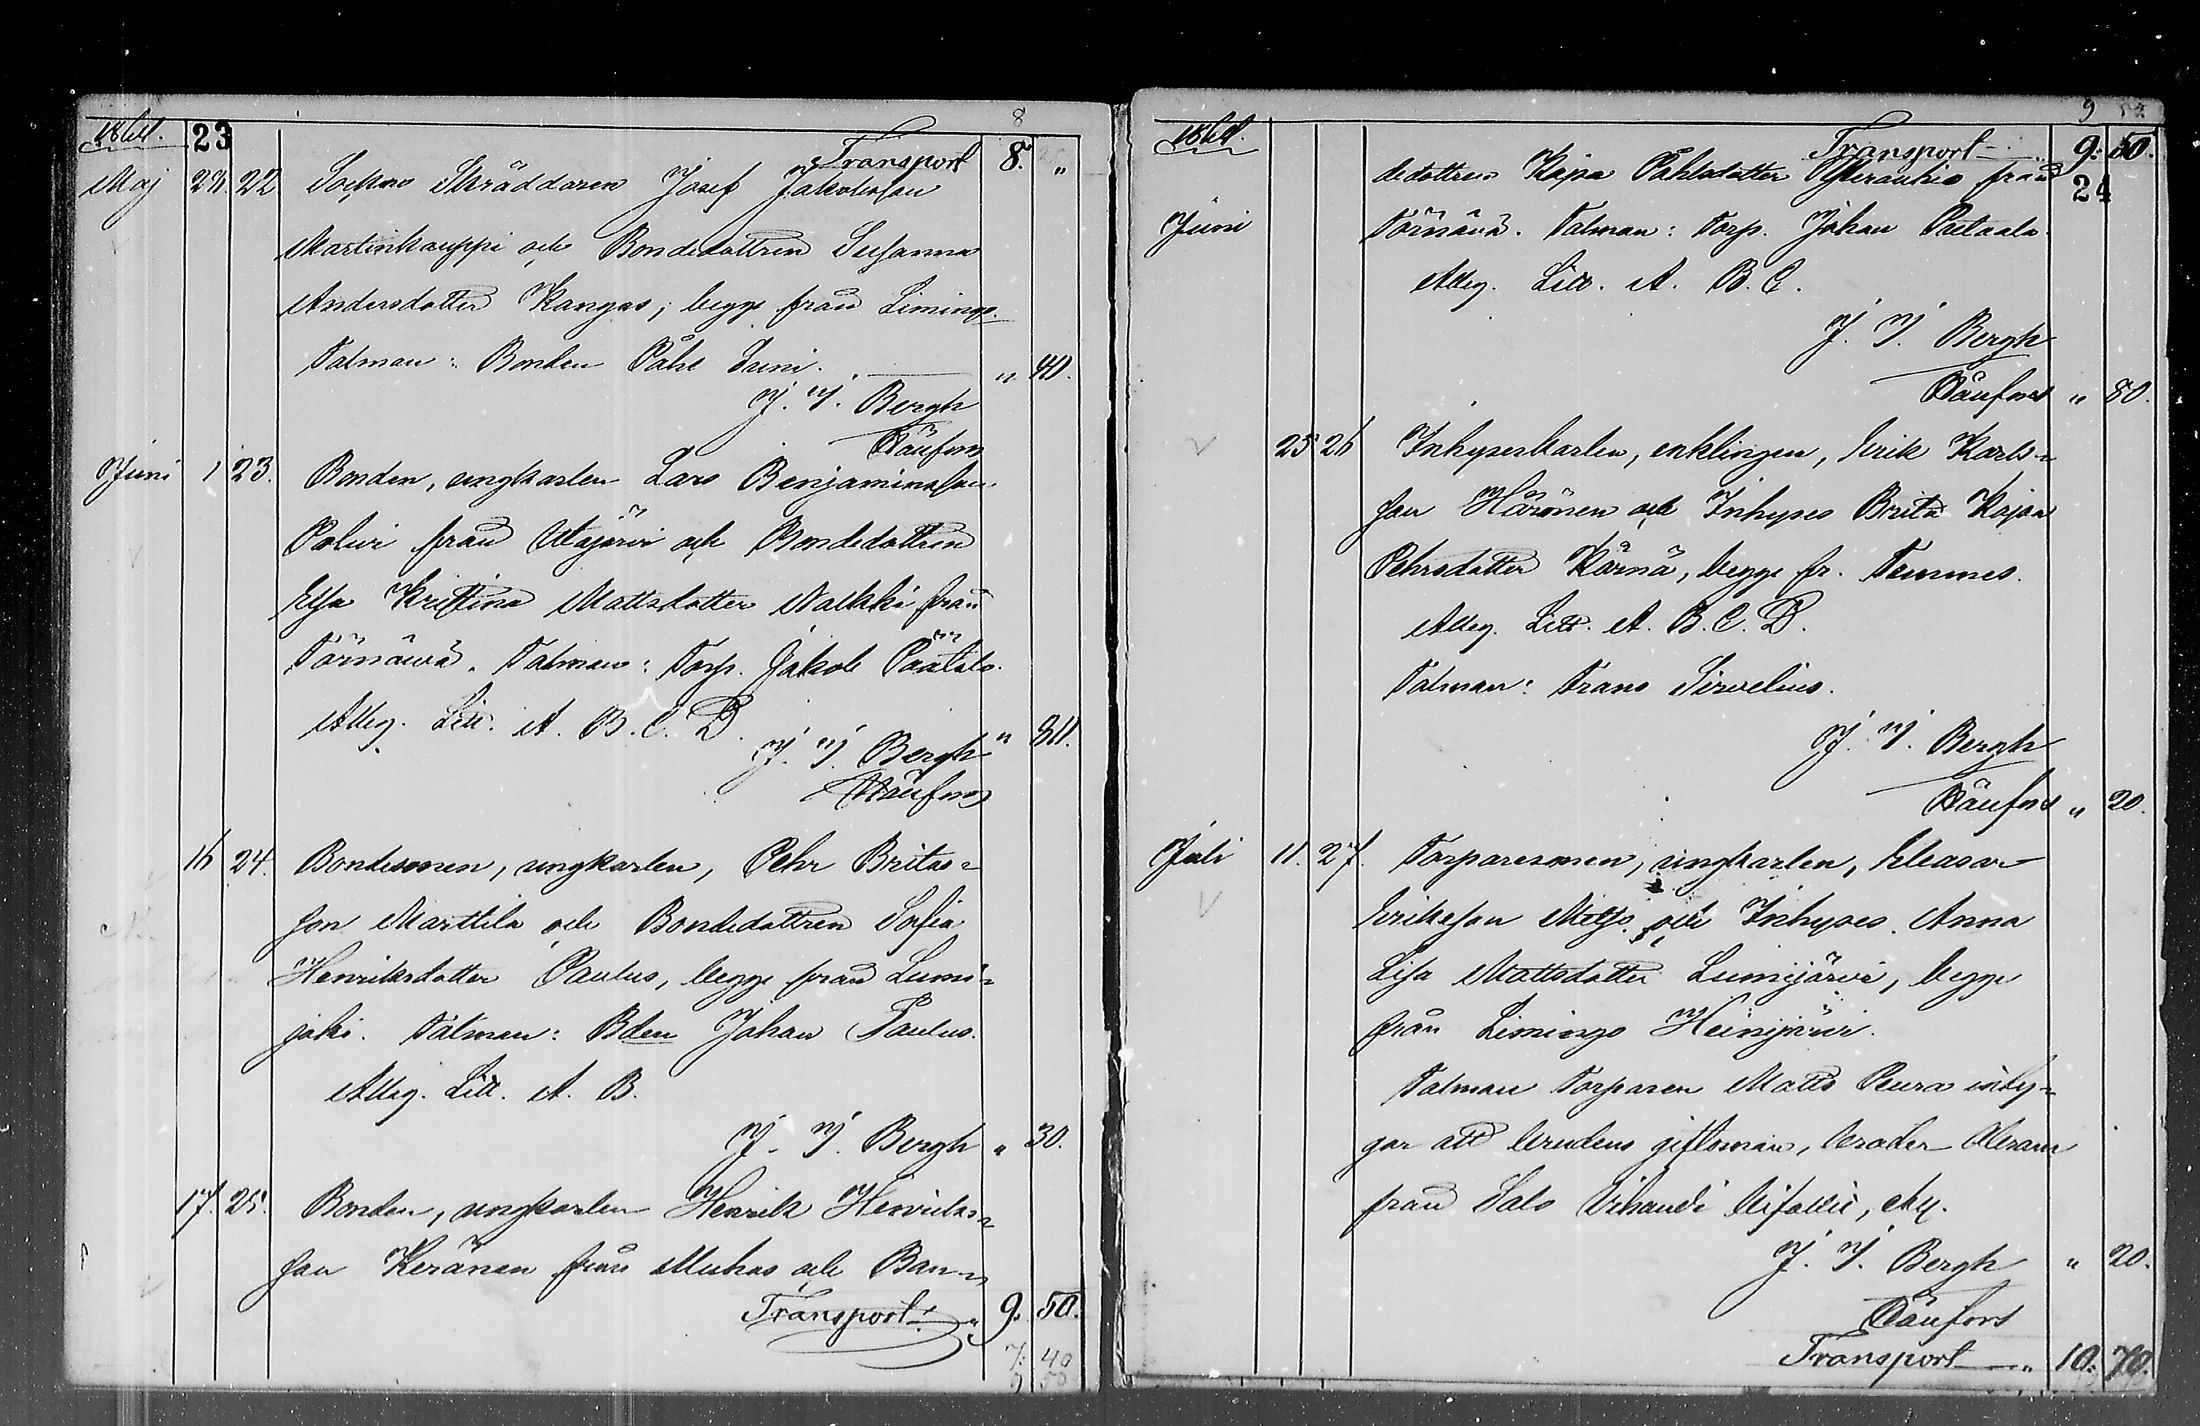 8
1864. 23
Transport 8. "
Maj 28. 22 Sockne Skräddaren Josef Jakobsson
Martinkauppi och Bondedottren Susanna
Andersdotter Kangas; begge från Limingo.
Talman: Bonden Påhl Suni. " 40.
J. J. Bergh
Juni 1 23. Bonden, ungkarlen Lars Benjaminsson
från Utajärvi och Bondedottren
Elsa Kristina Mattsdotter från
Törnävä. Talman: Torp. Jakob
Atteg. Litt. A. B. C. D.
J. J. Bergh " 80.
16 24. Bondesonen, ungkarlen, Pehr Britas-
son Marttila och Bondedottren Sofia
Henriksdotter Paulus, begge från Lumi-
joki. Talman: Bden Johan Paulus.
Atteg. Litt. A. B.
J. J. Bergh " 30.
17. 25. Bonden, ungkarlen Henrik Henriks-
son Keränen från Muhos och Bon-
Transport " 9. 50.
7: 40
9 50
9 50
1864. Transport " 9: 50.
24
dedottren Kajsa Påhlsdotter från
Juni Törnävä. Talman: Torp. Johan
Atteg. Litt. A. B. C.
J. J. Bergh
" 80.
25 26 Inhyseskarlen, enklingen, Erik Karls-
son Härönen och Inhyses Brita Kajsa
Pehrsdotter Kärnä, begge fr. Temmes.
Atteg. Litt. A. B. C. D.
Talman: Frans Sirvelius.
J. J. Bergh
" 20.
Juli 11. 27. Torparesonen, ungkarlen, Eleasar
Eriksson och Inhyses Anna
Lisa Mattsdotter Lumijärvi, begge
från Limingo Heinijärvi.
Talman Torparen Matts Peura inty-
gar att brudens giftoman, broder Abram
från Salo Vihandi bifallit,
J. J. Bergh " 20.
Transport " 10: 70.